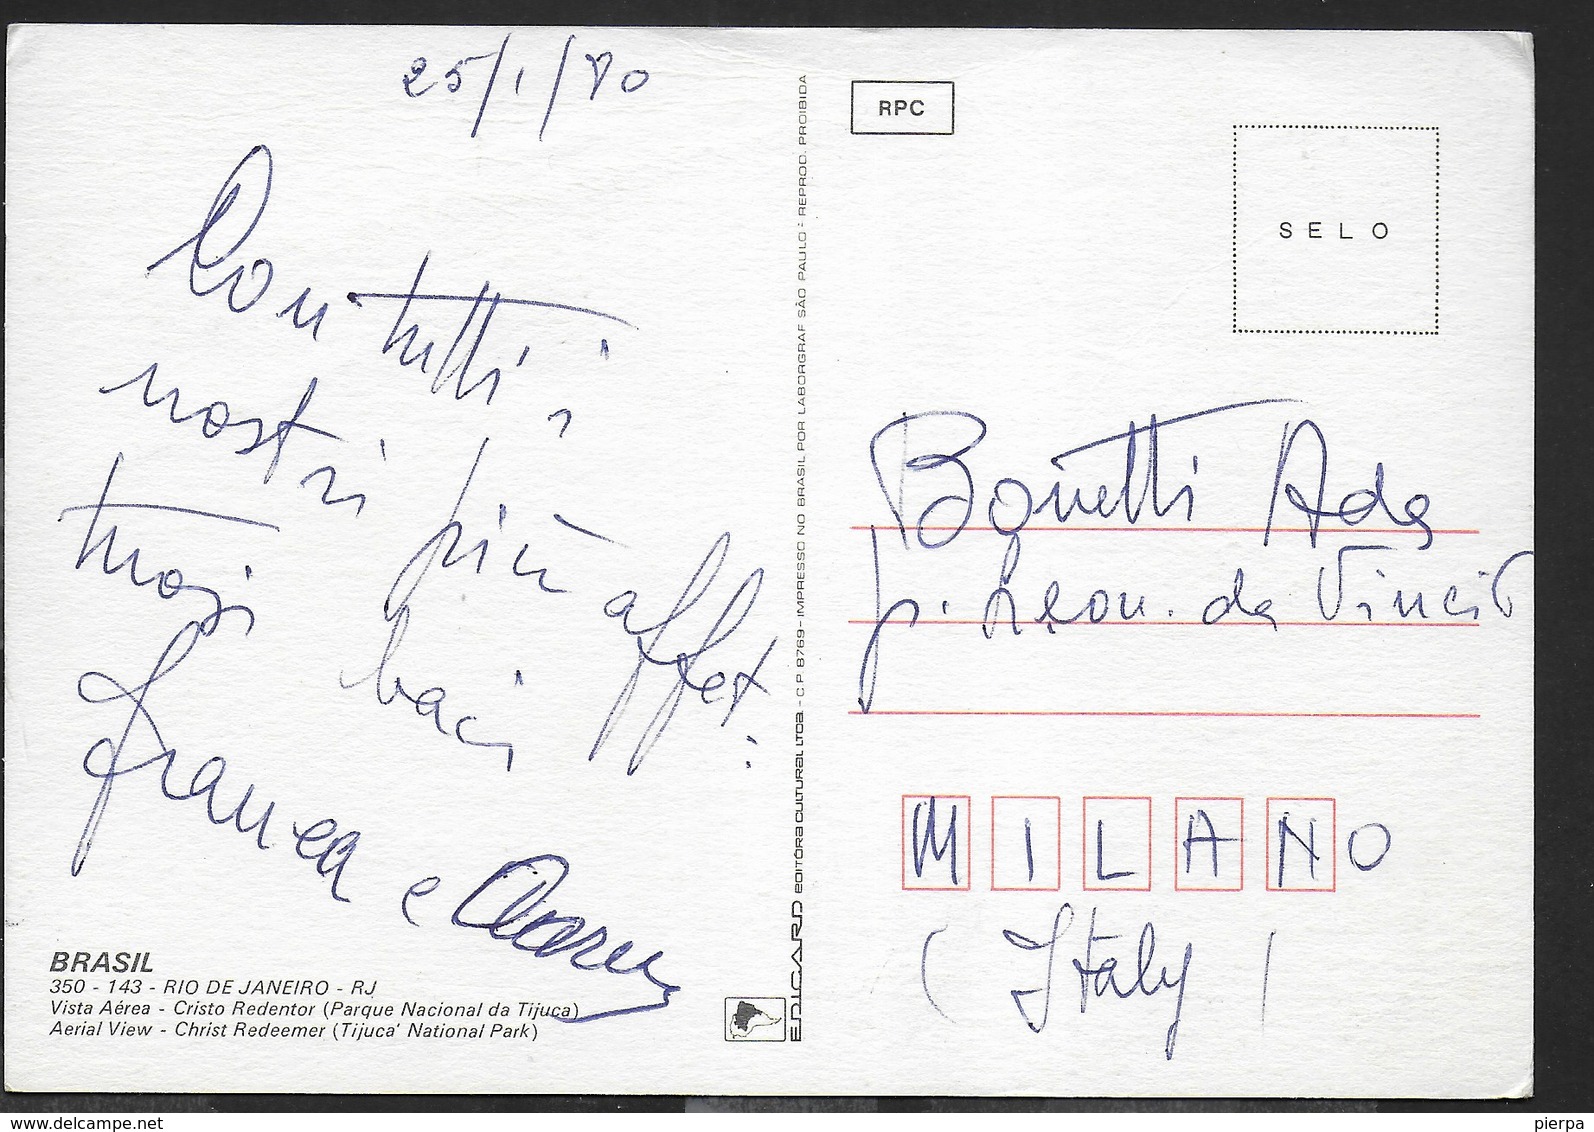 25/1/80
Con tutti i
nostri più affet
tuosi baci
Franca e
BRASIL
350 - 143 - RIO DE JANEIRO - RJ
Vista Aérea - Cristo Redentor (Parque Nacional da Tijuca)
Aerial View - Christ Redeemer (Tijuca' National Park)
EDICARD EDITÔRA CULTURAL LTDA. - C P 8769 - IMPRESSO NO BRASIL POR LABORGRAF SÃO PAULO - REPROD. PROIBIDA
RPC
SELO
Bonetti Ada
p. Leon. da Vinci
MILANO
(Italy)
www.delcampe.net
pierpa